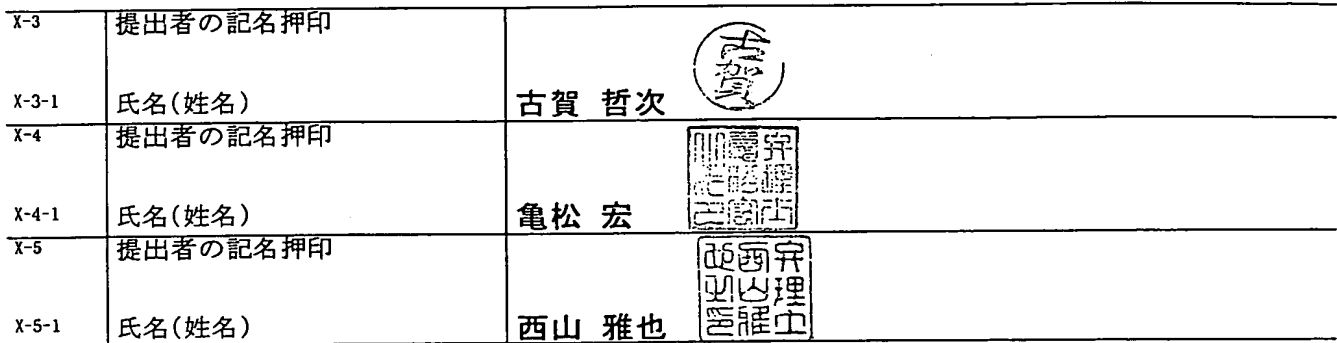 X-3 提出者の記名押印
古賀
X-3-1 氏名(姓名) 古賀 哲次
X-4 提出者の記名押印
X-4-1 氏名(姓名) 亀松 宏
X-5 提出者の記名押印
弁理士西山雅也之印
X-5-1 氏名(姓名) 西山 雅也